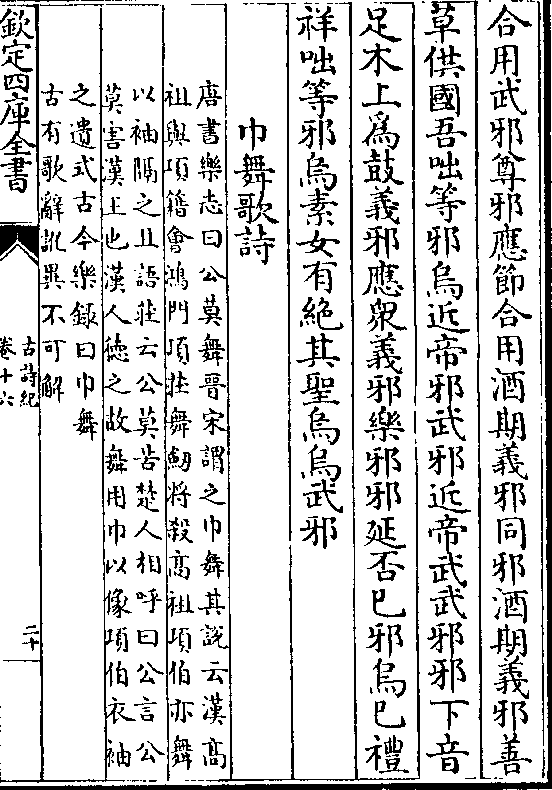 合用武邪尊邪應節合用酒期義邪同邪酒期義邪善
草供國吾咄等邪烏近帝邪武邪近帝武武邪邪下音
足木上為鼓義邪應衆義邪樂邪邪延否已邪烏已禮
祥咄等邪烏素女有絶其聖烏烏武邪
巾舞歌詩
唐書樂志曰公莫舞晉宋謂之巾舞其説云漢髙
祖與項籍會鴻門項莊舞劒将殺髙祖項伯亦舞
以袖隔之且語莊云公莫苦楚人相呼曰公言公
莫害漢王也漢人徳之故舞用巾以像項伯衣袖
之遺式古今樂録曰巾舞
古有歌辭訛異不可解
欽定四庫全書
古詩紀
卷十六
二十